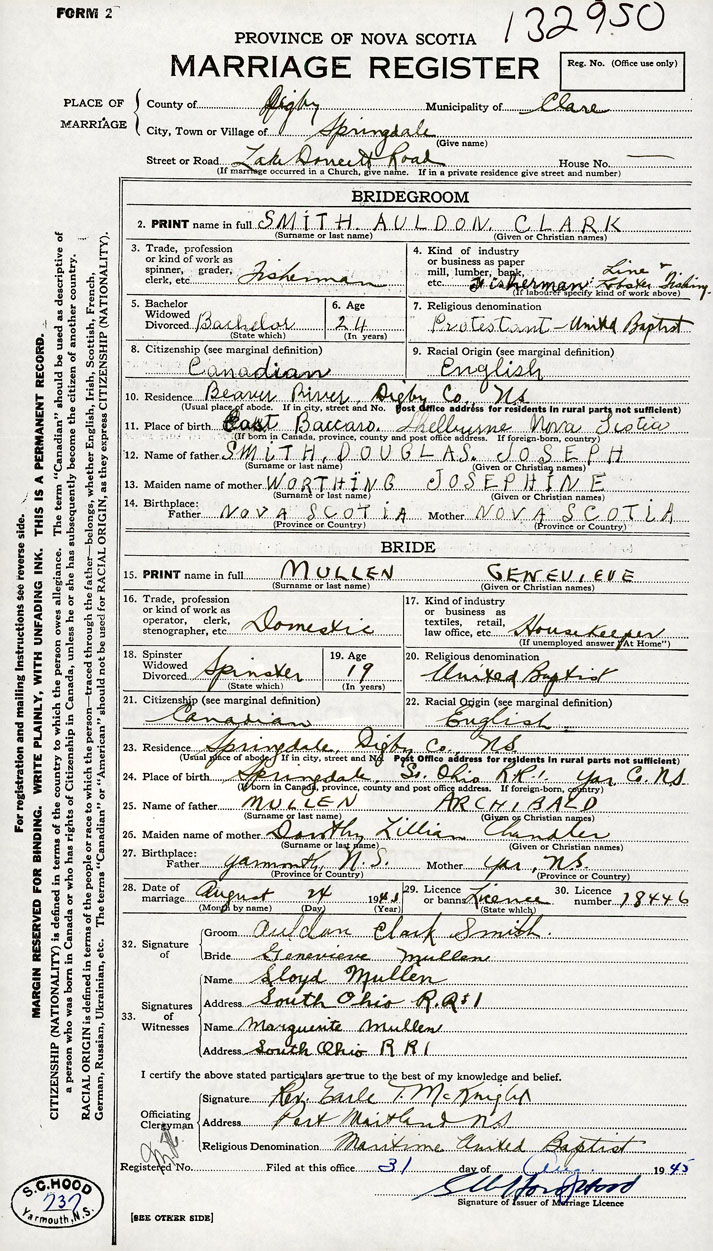 FORM 2
132950
PROVINCE OF NOVA SCOTIA
MARRIAGE REGISTER
Reg. No. (Office use only)
PLACE OF MARRIAGE
County of Digby Municipality of Clare
City, Town or Village of Springdale
(Give name)
Street or Road Lake Doucett Road House No. —
(If marriage occurred in a Church, give name. If in a private residence give street and number)
BRIDEGROOM
2. PRINT name in full SMITH. AULDON. CLARK
(Surname or last name) (Given or Christian names)
3. Trade, profession or kind of work as spinner, grader, clerk, etc. Fisherman
4. Kind of industry or business as paper mill, lumber, bank, etc. Fisherman: Line & Lobster Fishing.
(If labourer specify kind of work above)
5. Bachelor Widowed Divorced Bachelor
(State which)
6. Age 24
(In years)
7. Religious denomination
Protestant - United Baptist
8. Citizenship (see marginal definition)
Canadian
9. Racial Origin (see marginal definition)
English
10. Residence Beaver River, Digby Co., N.S.
(Usual place of abode. If in city, street and No. Post Office address for residents in rural parts not sufficient)
11. Place of birth East Baccaro. Shelburne Nova Scotia
(If born in Canada, province, county and post office address. If foreign-born, country)
12. Name of father SMITH, DOUGLAS. JOSEPH
(Surname or last name) (Given or Christian names)
13. Maiden name of mother WORTHING JOSEPHINE
(Surname or last name) (Given or Christian names)
14. Birthplace: Father NOVA SCOTIA Mother NOVA SCOTIA
(Province or Country) (Province or Country)
BRIDE
15. PRINT name in full MULLEN GENEVIEVE
(Surname or last name) (Given or Christian names)
16. Trade, profession or kind of work as operator, clerk, stenographer, etc. Domestic
17. Kind of industry or business as textiles, retail, law office, etc. Housekeeper
(If unemployed answer "At Home")
18. Spinster Widowed Divorced Spinster
(State which)
19. Age 19
(In years)
20. Religious denomination
United Baptist
21. Citizenship (see marginal definition)
Canadian
22. Racial Origin (see marginal definition)
English
23. Residence Springdale, Digby Co., N.S.
(Usual place of abode. If in city, street and No. Post Office address for residents in rural parts not sufficient)
24. Place of birth Springdale, So. Ohio R.R.1. Yar. Co. N.S.
(If born in Canada, province, county and post office address. If foreign-born, country)
25. Name of father MULLEN ARCHIBALD
(Surname or last name) (Given or Christian names)
26. Maiden name of mother Dorothy Lillian Chandler
(Surname or last name) (Given or Christian names)
27. Birthplace: Father Yarmouth, N.S. Mother Yar., N.S.
(Province or Country) (Province or Country)
28. Date of marriage August 24 1945
(Month by name) (Day) (Year)
29. Licence or banns Licence
(State which)
30. Licence number 18446
32. Signature of
Groom Auldon Clark Smith.
Bride Genevieve Mullen
33. Signatures of Witnesses
Name Lloyd Mullen
Address South Ohio R.R#1
Name Marguerite Mullen
Address South Ohio R R 1
I certify the above stated particulars are true to the best of my knowledge and belief.
Officiating Clergyman
Signature Rev. Earle T. McKnight
Address Port Maitland N.S.
Religious Denomination Maritime United Baptist
Registered No. Filed at this office 31 day of Aug. 1945
Signature of Issuer of Marriage Licence
[SEE OTHER SIDE]
S.C. HOOD
237
Yarmouth, N.S.
For registration and mailing instructions see reverse side.
MARGIN RESERVED FOR BINDING. WRITE PLAINLY, WITH UNFADING INK. THIS IS A PERMANENT RECORD.
CITIZENSHIP (NATIONALITY) is defined in terms of the country to which the person owes allegiance. The term "Canadian" should be used as descriptive of
a person who was born in Canada or who has rights of Citizenship in Canada, unless he or she has subsequently become the citizen of another country.
RACIAL ORIGIN is defined in terms of the people or race to which the person—traced through the father—belongs, whether English, Irish, Scottish, French,
German, Russian, Ukrainian, etc. The terms "Canadian" or "American" should not be used for RACIAL ORIGIN, as they express CITIZENSHIP (NATIONALITY).